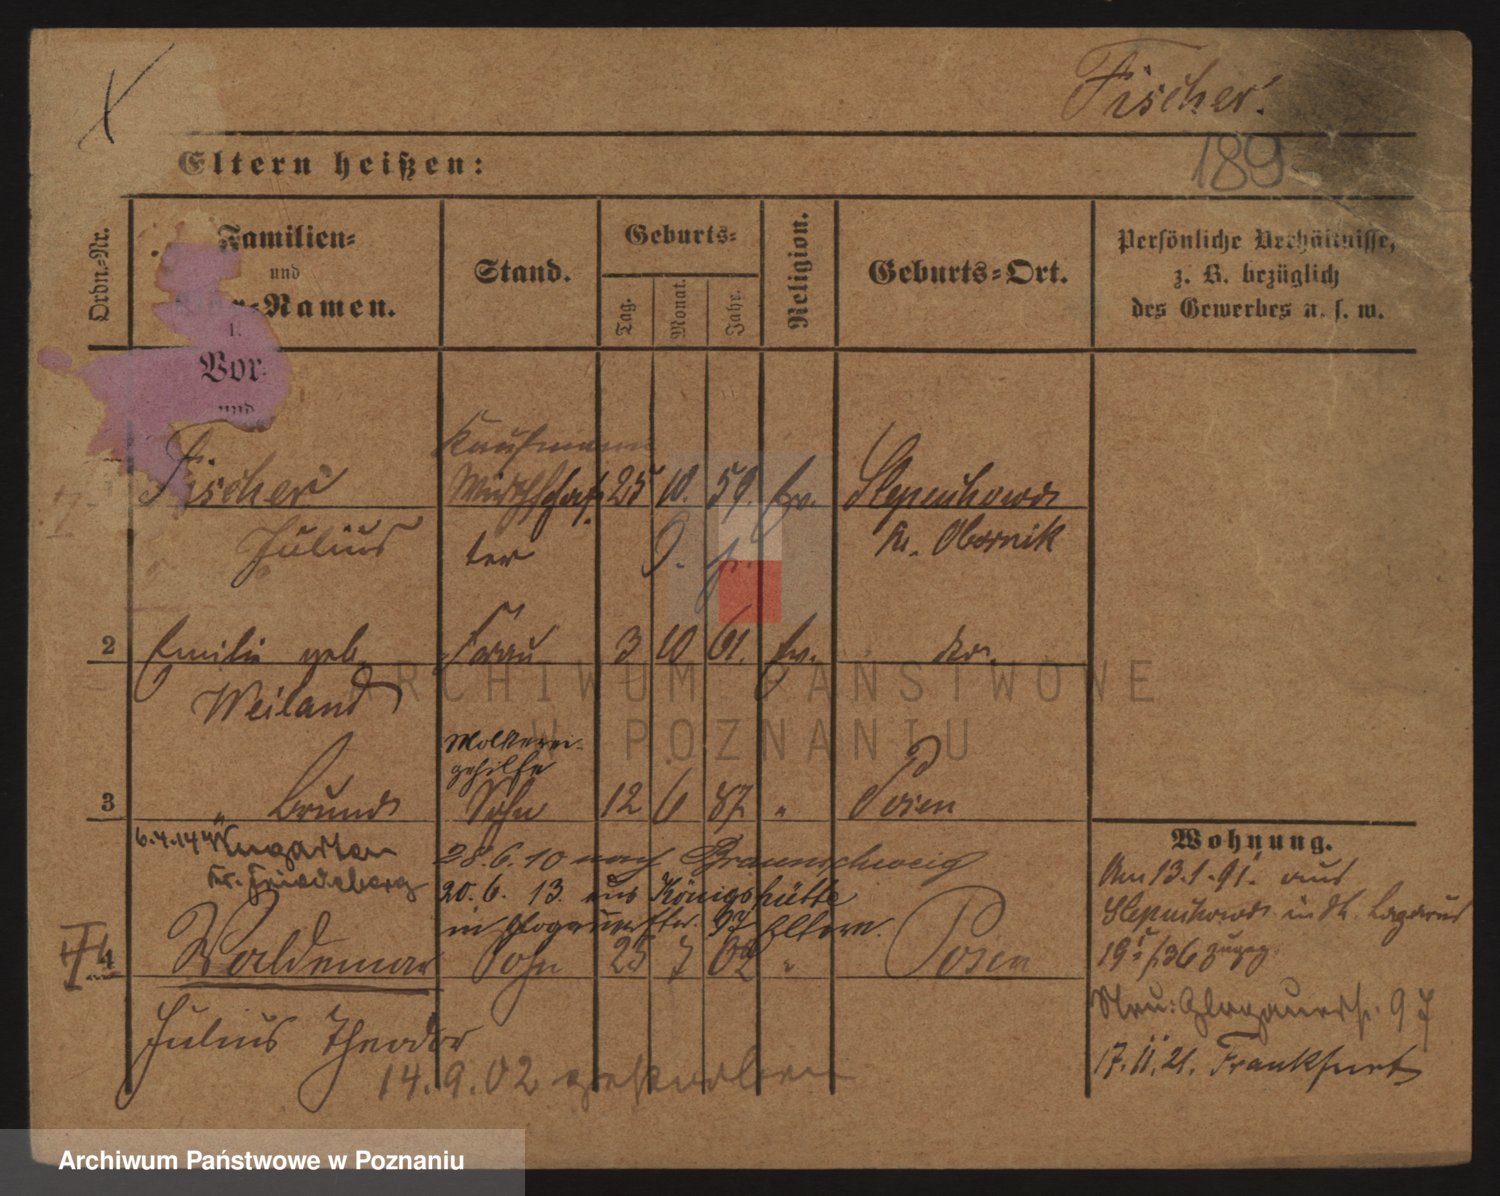 Fischer.
189
Eltern heißen:
Ordn.-Nr.
Familien-
und
Vor-Namen.
Stand.
Geburts-
Tag.
Monat.
Jahr.
Religion.
Geburts-Ort.
Persönliche Verhältnisse,
z. B. bezüglich
des Gewerbes u. s. w.
Vor-
und
Kaufmann
Fischer Wirthschaf- 25 10. 59. Ev.
Julius ter Kr. Obornik
2 Emilie geb. Frau 3 10 61. Ev. do.
Weiland
Molkerei-
gehilfe
3 " Bruno Sohn 12 6 87 " Posen
Wohnung.
6.4.14
Kr. Friedeberg
28.6.10 nach Braunschweig
20.6.13. aus Königshütte
in Glogauerstr. 97 Eltern.
4 Waldemar Sohn 25 7 02 " Posen
Julius Theodor
14.9.02 gestorben
Am 13.1.91. aus
in St. Lazarus
zugz.
Neu: Glogauerstr. 97
17.11.21. Frankfurt
ARCHIWUM PAŃSTWOWE
W POZNANIU
Archiwum Państwowe w Poznaniu